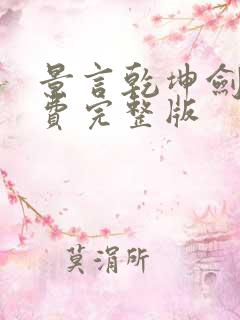 景言乾坤剑
费完整版
莫涓所